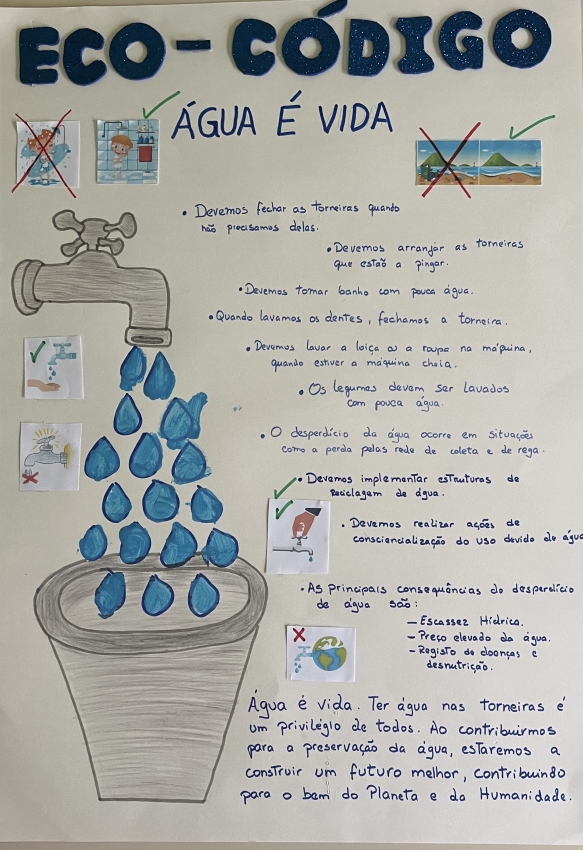 ECO-CÓDIGO
ÁGUA É VIDA
• Devemos fechar as torneiras quando
não precisamos delas.
• Devemos arranjar as torneiras
que estão a pingar.
• Devemos tomar banho com pouca água.
• Quando lavamos os dentes, fechamos a torneira.
• Devemos lavar a loiça ou a roupa na máquina,
quando estiver a máquina cheia.
• Os legumes devem ser lavados
com pouca água.
• O desperdício da água ocorre em situações
como a perda pelas rede de coleta e de rega.
• Devemos implementar estruturas de
Reciclagem de água.
• Devemos realizar ações de
consciencialização do uso devido de água
• As Principais consequências do desperdício
de água são:
— Escassez Hídrica.
— Preço elevado da água.
— Registo de doenças e
desnutrição.
Água é vida. Ter água nas torneiras é
um privilégio de todos. Ao contribuirmos
para a preservação da água, estaremos a
construir um futuro melhor, contribuindo
para o bem do Planeta e da Humanidade.